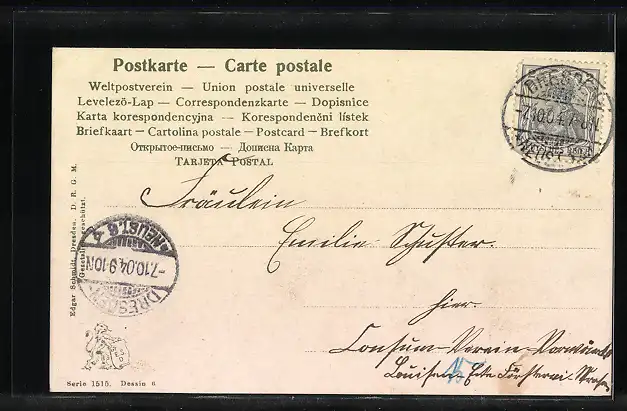 Postkarte — Carte postale
Weltpostverein — Union postale universelle
Levelező-Lap — Correspondenzkarte — Dopisnice
Karta korespondencyjna — Korespondenční lístek
Briefkaart — Cartolina postale — Postcard — Brefkort
Открытое-письмо — Дописна Карта
TARJETA POSTAL
DRESDEN
7.10.04.7-8N
NEUST.
Fräulein
Emilie Schuster.
hier.
Consum-Verein-Vorwärts
Louisen- Ecke Försterei-Straße
DRESDEN
-7.10.04.9-10N
NEUST. 6
Edgar Schmidt, Dresden. D. R. G. M.
Gesetzlich geschützt.
Serie 1515. Dessin 6